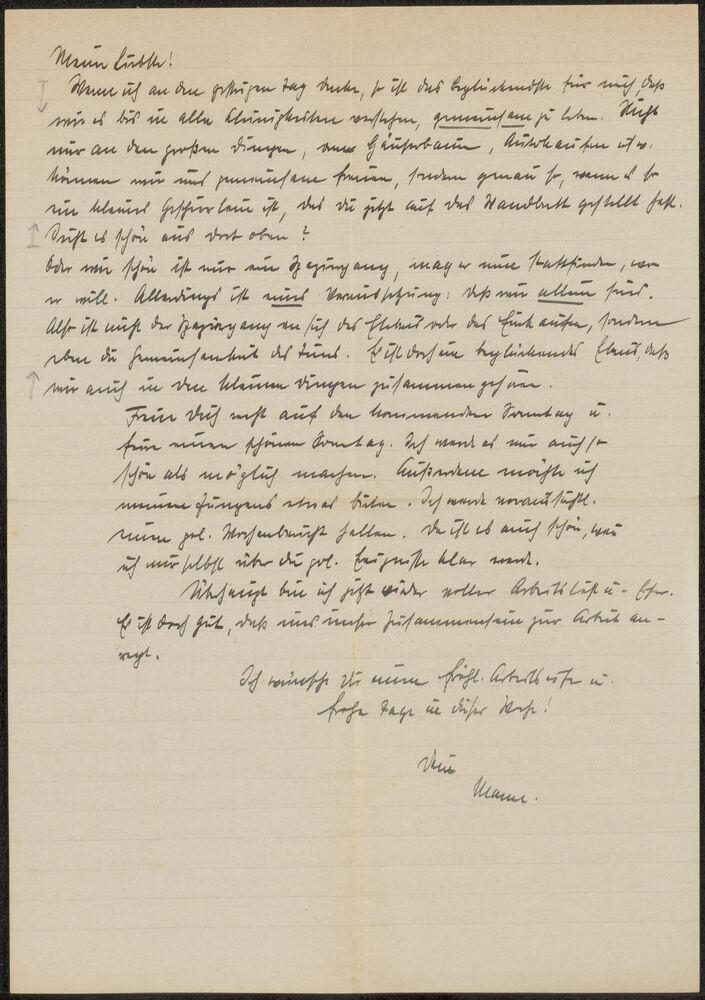 Meine Liebste!
Wenn ich an den gestrigen Tag denke, so ist das Beglückendste für mich, daß
wir es bis in alle Kleinigkeiten verstehen, gemeinsam zu leben. Nicht
nur an den großen Dingen, Häuserbauen, Autokaufen usw.
können wir uns gemeinsam freuen, sondern genau so, wenn es so
ein kleines Geschirrlein ist, das du jetzt auf das Wandbrett gestellt hast.
Sieht es schön aus dort oben?
Oder wie schön ist nur ein Spaziergang, mag er nun stattfinden, wo
er will. Allerdings ist eines Voraussetzung: daß wir allein sind.
Also ist nicht der Spaziergang an sich das Erlebnis oder das Einkaufen, sondern
eben die Gemeinsamkeit des Tuns. Es ist doch ein beglückendes Erlebnis, daß
wir auch in den kleinen Dingen zusammengehören.
Freue Dich recht auf den kommenden Sonntag u.
einen schönen Sonntag. Ich werde es mir auch so
schön als möglich machen. Außerdem möchte ich
meinen Jungens etwas bieten. Ich werde voraussichtl.
einen pol. Wochenbericht halten. Da ist es auch schön, wenn
ich mir selbst über die pol. Ereignisse klar werde.
Überhaupt bin ich jetzt wieder voller Arbeitslust u.
Es ist doch gut, daß uns unser Zusammensein zur Arbeit an-
regt.
Ich wünsche Dir einen fröhl. Arbeitseifer u.
frohe Tage in dieser Woche!
Dein
Mann.